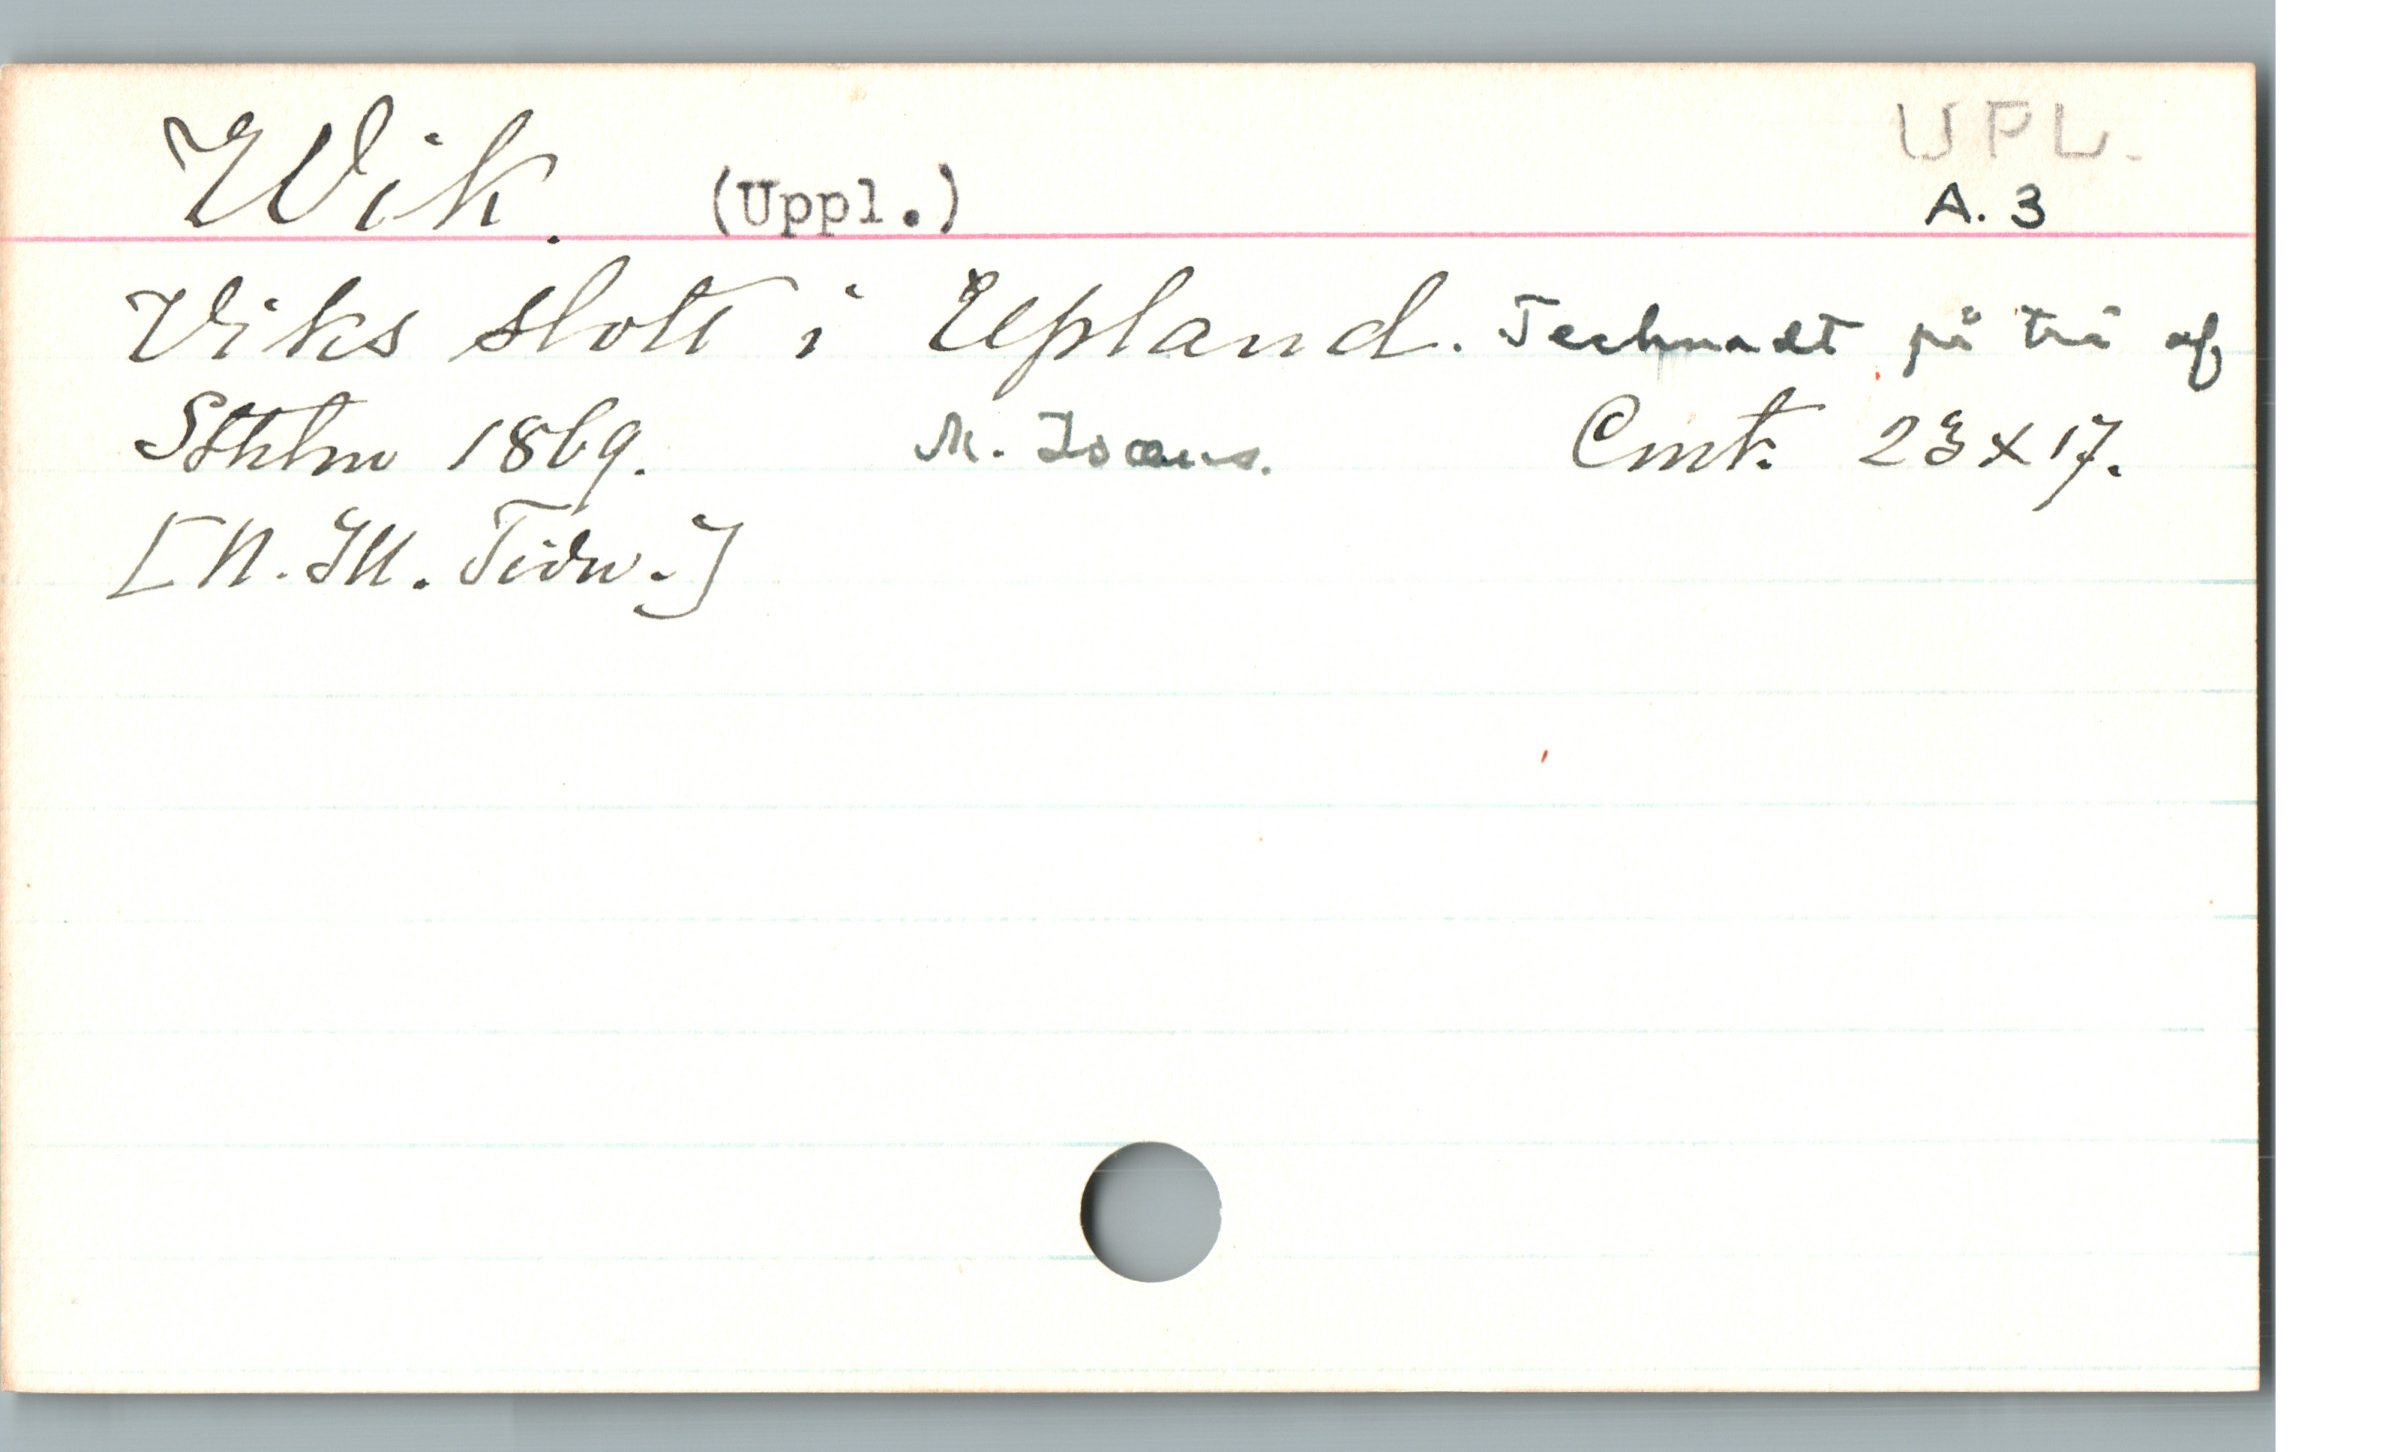 UPL.
Wik. (Uppl.) A. 3
Viks slott i Upland. Technadt på trä af
Sthlm 1869. M. Isæus. Cmt. 23 x 17.
[N. Ill. Tidn.]